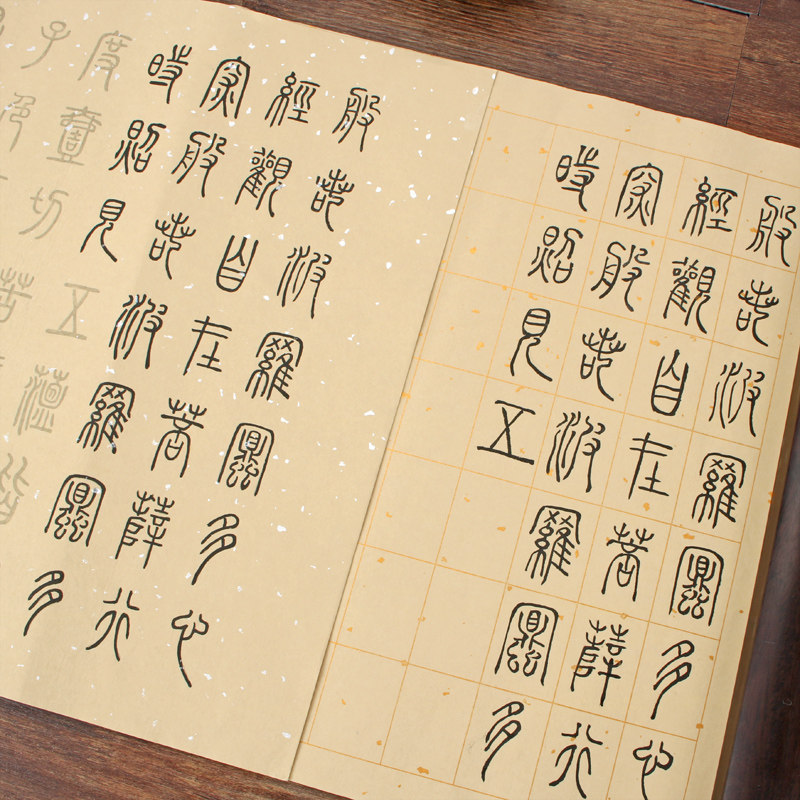 般若波羅蜜多心
經觀自在菩薩行
深般若波羅蜜多
時照見五
般若波羅蜜多心
經觀自在菩薩行
深般若波羅蜜多
時照見五蘊皆
度壹切苦
子色